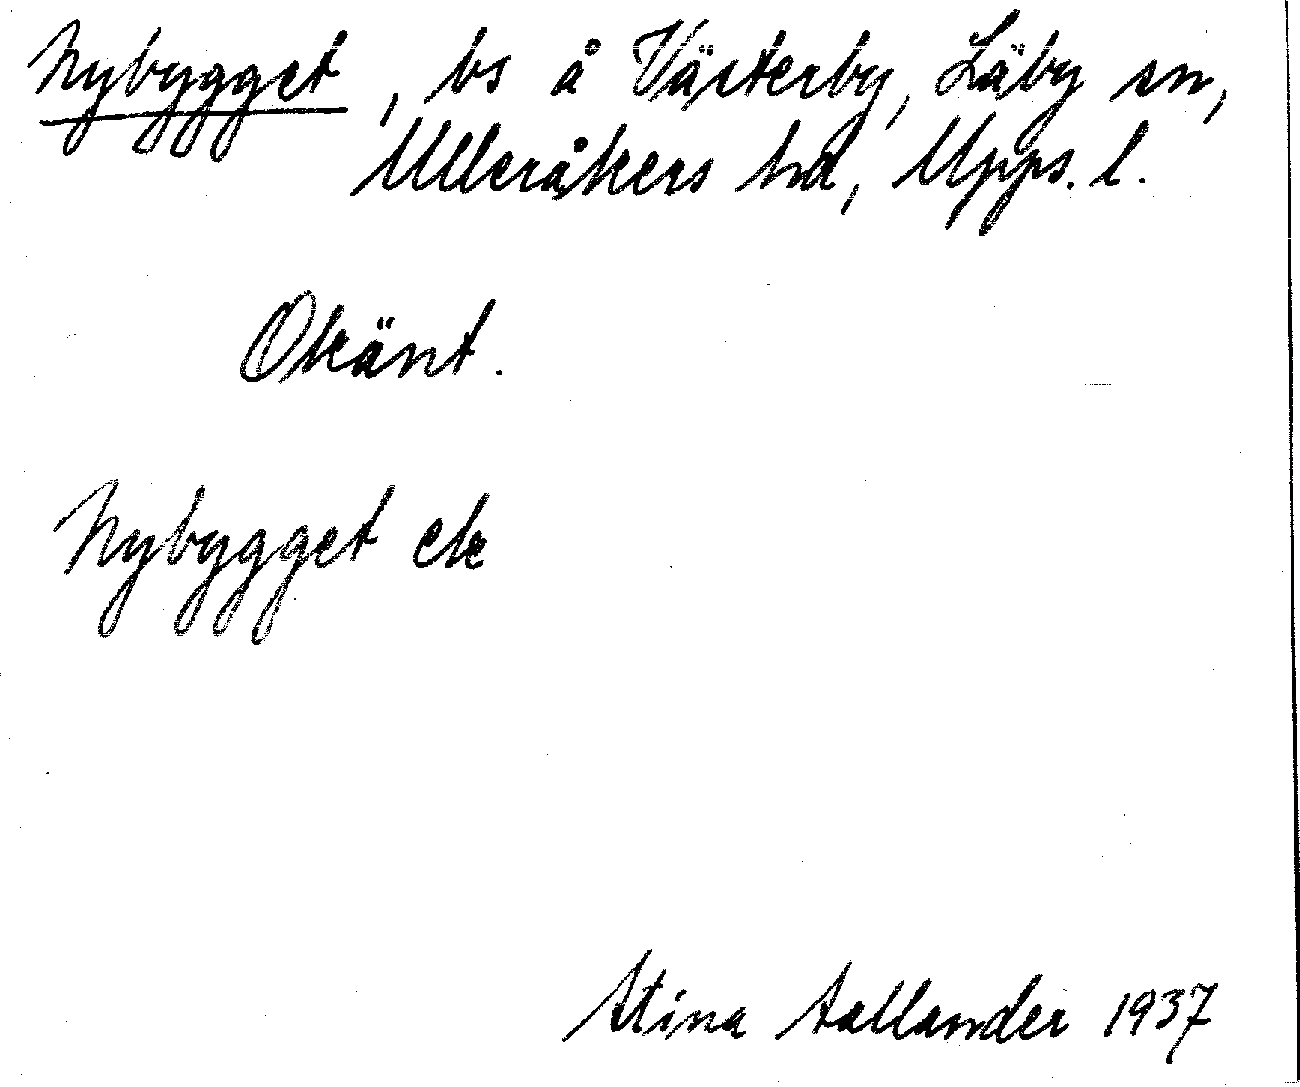 Nybygget, bs å Västerby, Läby sn,
Ulleråkers hd, Upps. l.
Okänt.
Nybygget ek
Stina Hallander 1937